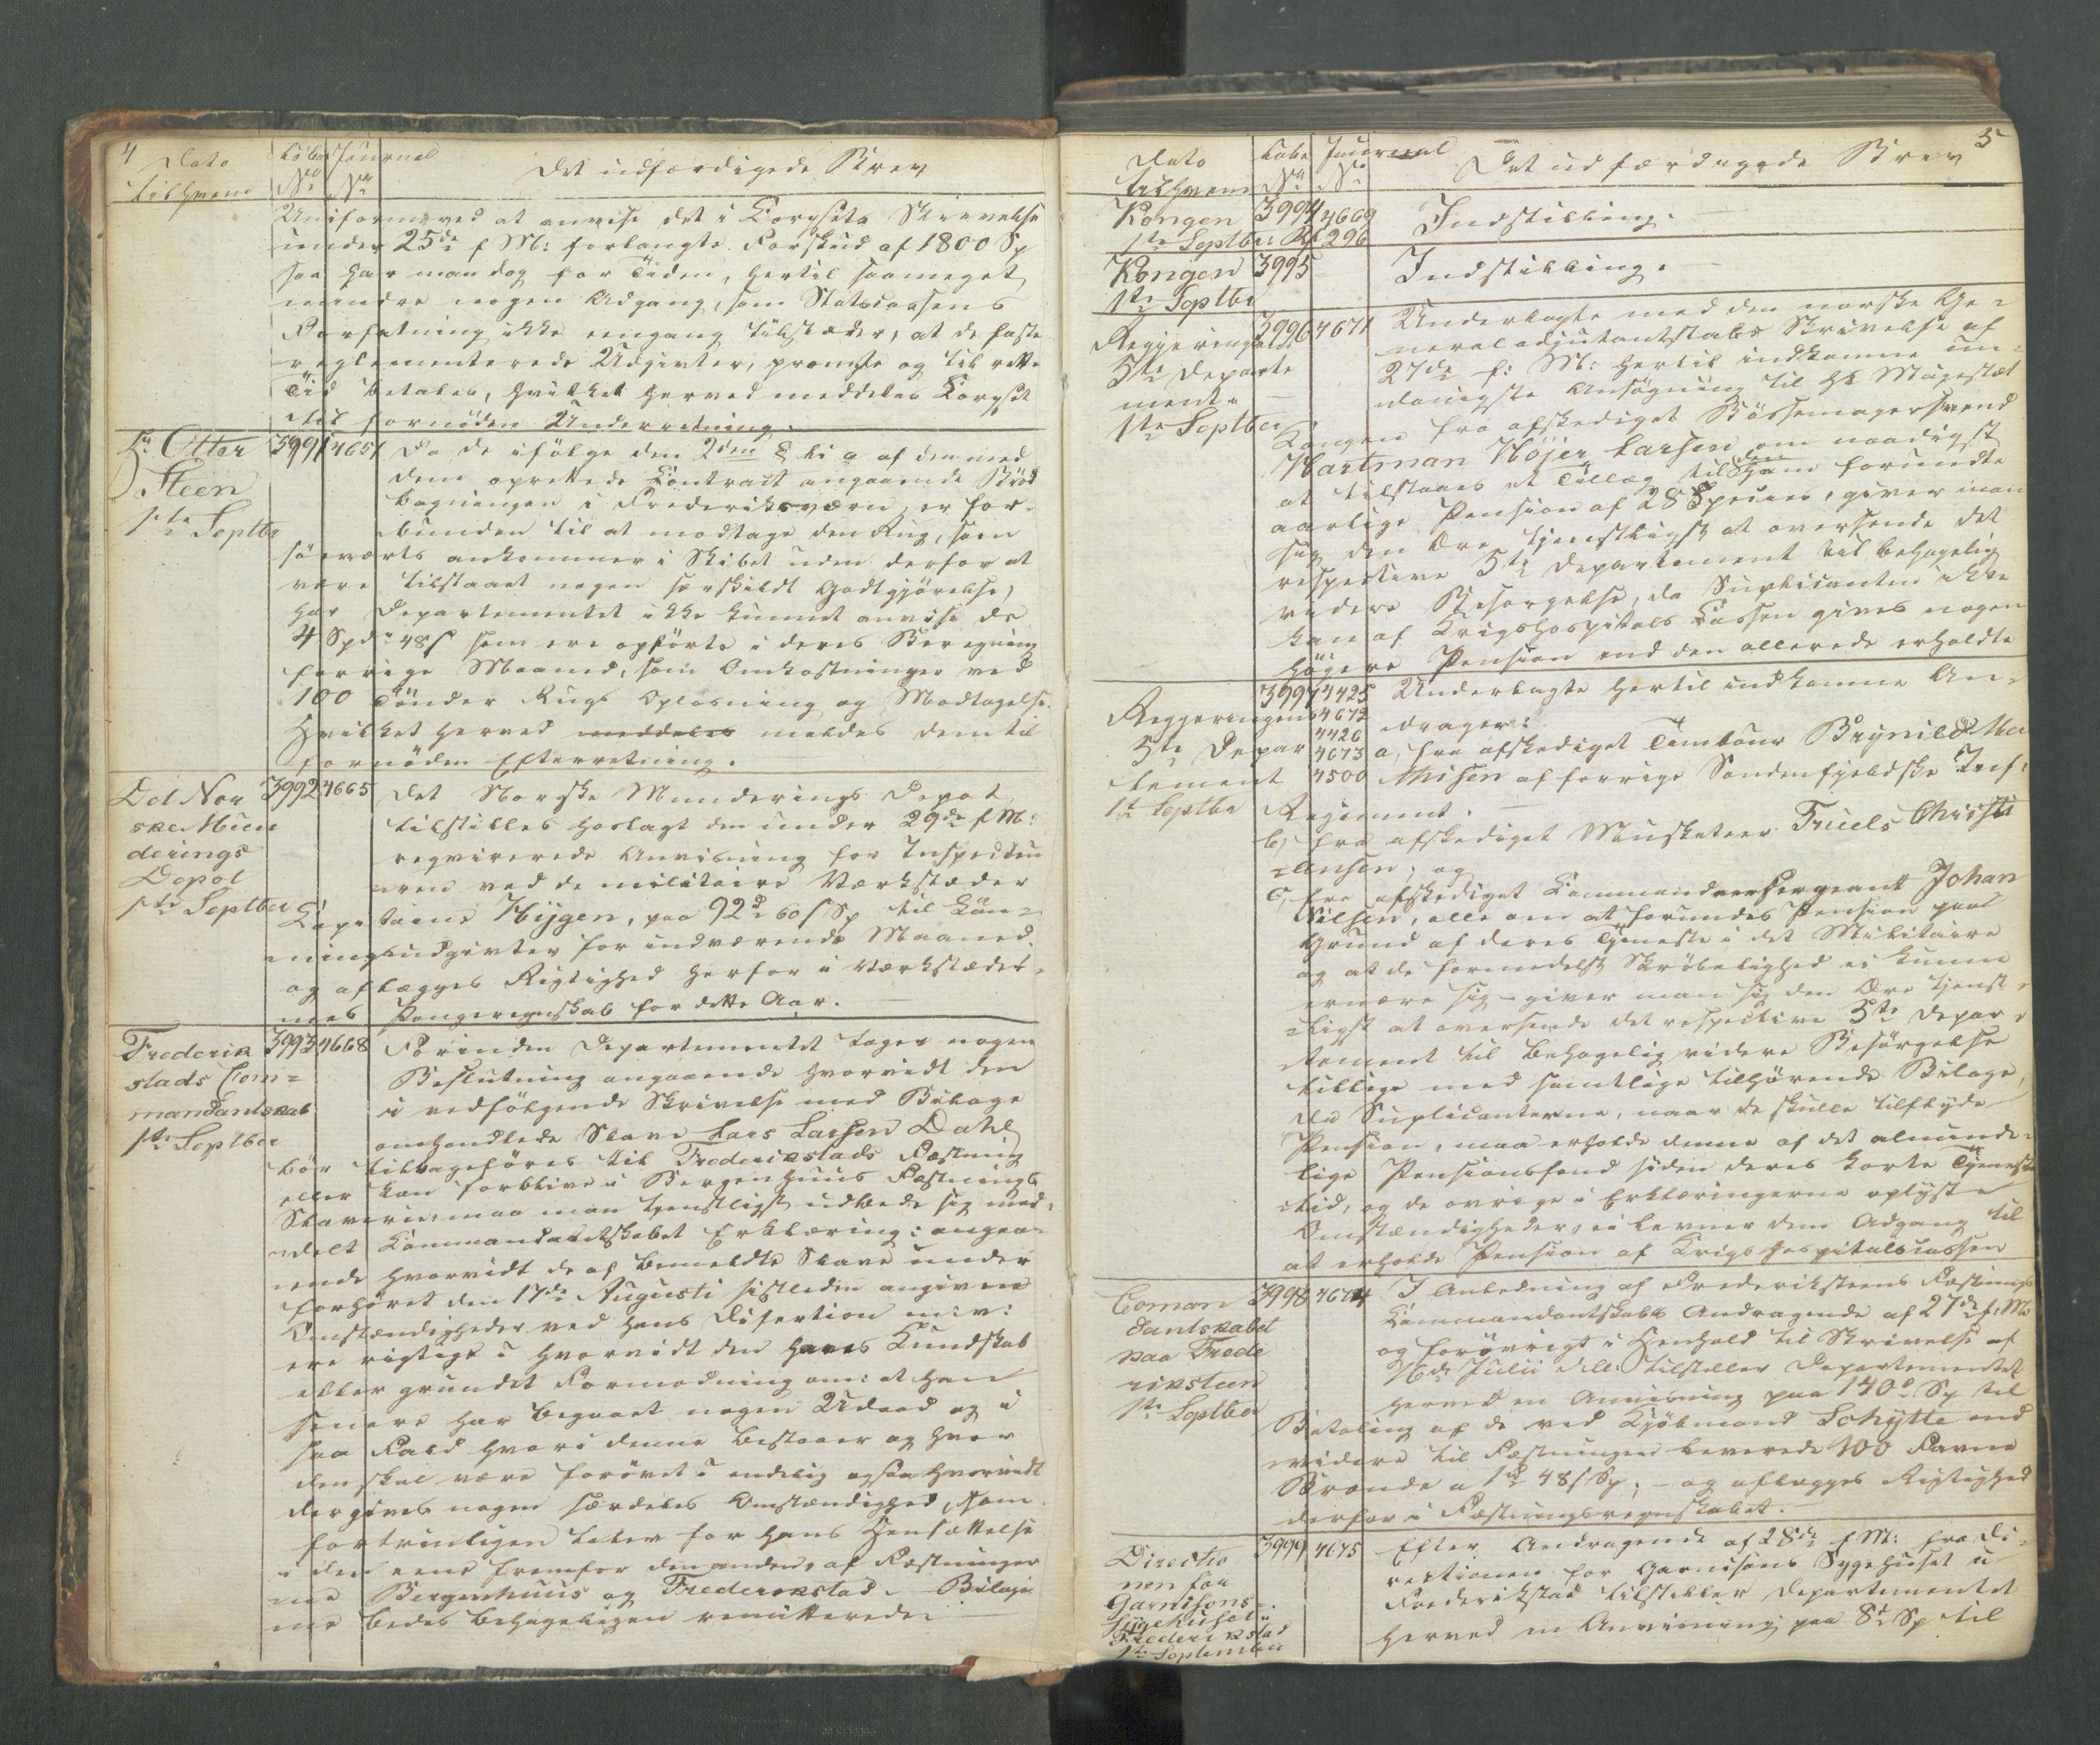 4
Dato
Løbe Journal
Det udfærdigede Brev
til hvem
No No
Uniformer ved at anvise det i Corpsets Skrivelse
under 25de f M: forlangte Forskud af 1800 Sp
saa har man dog for Tiden, hertil saameget
mindre nogen Adgang, som Statscassens
Forfatning ikke eengang tilsteder, at de faste
reglementerede Udgivter, prompte og til rette
Tid betales, hvilket herved meddeles Corpset
til fornøden Underretning.
Hr. Otter
Steen
1ste Septbr
3991 4651
Da de ifølge den 2den § Li a af den med
dem oprettede Contract angaaende Brød
bagningen i Frederiksværn, er for-
bunden til at modtage den Rug, som
søeværts ankommer i Skibet uden derfor at
være tilstaaet nogen særskildt Godtgjørelse,
har Departementet ikke kunnet anvise de
4 Spdr 48 s som ere opførte i deres Beregning
forrige Maaned, som Omkostninger ved
100 Tønder Rugs Oplosning og Modtagelse.
Hvilket herved meddeles meldes dem til
fornøden Efterretning.
Det Nor
ske Mun
derings
Depot
1ste Septber
3992 4665
Det Norske Munderings Depot
tilstilles hoslagt den under 29de f M:
reqvirerede Anvisning for Inspecteu
ren ved de militaire Værkstæder
Capitaine Hüjgen, paa 92d 60 s Sp til Løn-
ningsudgivter for indværende Maaned
og aflægges Rigtighed herfor i Værkstædet-
nes Pengeregnskab for dette Aar.
Frederik
stads Com=
mandantskab
1ste Septber
3993 4668
Forinden Departementet tager nogen
Beslutning angaaende hvorvidt den
i vedfølgende Skrivelse med Bilage
omhandlede Slave Lars Larsen Dahl
bør tilbageføres til Frederikstads Fæstning
eller kan forblive i Bergenhuus Fæstnings
Slaverie, maa man tjenstligst udbede sig med-
deelt Commandantskabet Erklæring: angaa-
ende hvorvidt de af bemeldte Slave under
Forhøret den 17de Augusti sidstleden angivne
Omstændigheder ved hans Disertion m: v:
ere rigtige: hvorvidt den haves Kundskab
eller grundet Formodning om: at han
senere har begaaet nogen Udaad og i
saa Fald hvori denne bestaaer og hvor
den skal være forøvet: endelig ogsaa hvorvidt
der gives nogen særdeles Omstændighed, som
fortrinligen taler for hans Hensættelse
i den eene fremfor den anden, af Fæstninger
ne Bergenhuus og Frederikstad. Bilage
ne bedes behageligen remitterede.
5
Dato
Løbe Journal
Det udfærdigede Brev
til hvem
No No
Kongen
1ste Septbr
3994 4669
296
Indstilling.
Kongen
1ste Septbr
3995
Indstilling.
Regjeringens
5te Departe
ment
1ste Septber
3996 4671
Underlagte med den norske Ge-
neraladjutantstabs Skrivelse af
27de f: M: hertil indkomne un-
danigste Ansøgning til Hs Majestæt
Kongen fra afskediget Bøssemagersvend
Hartman Höjer Larsen om naadigst
at tilstaaes et Tillæg til den ham forundte
aarlige Pension af 28 Species, giver man
sig den Ære tjenstligst at oversende det
respective 5te Departement til behagelig
videre Besørgelse, da Suplicanten ikke
kan af Krigshospitals Cassen gives nogen
høiere Pension end den allerede erholdte
Regjeringens
5te Depar
tement
1ste Septbr
3997 4425
4672
4426
4673
4500
Underlagte hertil indkomne An-
drager:
a, fra afskediget Tambour Brynild Mar
thisen af forrige Søndenfjeldske Inf:
Regiment:
b, fra afskediget Musketeer Truels Christi
=ansen, og
c, fra afskediget Commandeersergeant Johan
Nilsen, alle om at forundes Pension paa
Grund af deres Tjeneste i det Militaire
og at de formedelst Skrøbelighed ei kunne
ernære sig – giver man sig den Ære tjenst-
ligst at oversende det respective 5te Depar-
tement til behagelig videre Besørgelse
tillige med samtlige tilhørende Bilage,
da Suplicanterne, naar de skulle tilflyde
Pension, maa erholde denne af det alminde-
lige Pensionsfond siden deres korte Tjeneste
tid, og de øvrige i Erklæringerne oplyste
Omstændigheder, ei levner dem Adgang til
at erholde Pension af Krigshospitalscassen
Coman
dantskabet
paa Frede
riksteen
1ste Septber
3998 4674
I Anledning af Frederiksteens Fæstnings
Commandantskabs Andragende af 27de f: M:
og forøvrigt i Henhold til Skrivelse af
16de Julii d: A: tilstiller Departementet
herved en Anvisning paa 140d Sp til
Betaling af de ved Kjøbmand Schytte end
videre til Fæstningen leverede 100 Favne
Brænde a 1d 48 s Sp; – og aflægges Rigtighed
derfor i Fæstningsregnskabet.
Directio
nen for
Garnisons
Sygehuset i
Frederikstad
1ste September
3999 4675
Efter Andragende af 28de f M: fra Di-
rectionen for Garnisons Sygehuset i
Frederikstad tilstiller Departementet
herved en Anvisning paa 8d Sp til